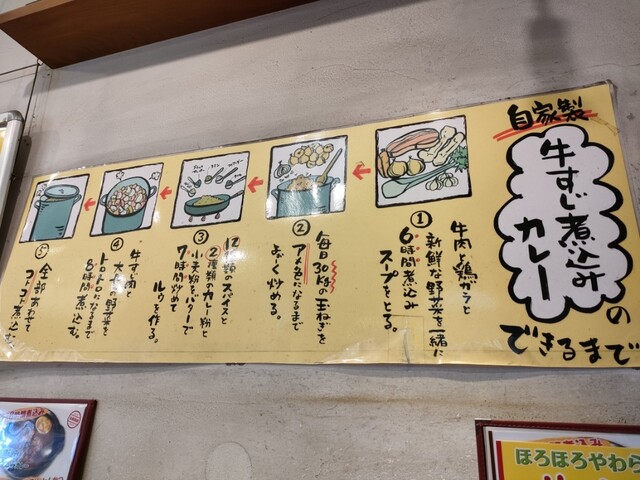 自家製
牛すじ煮込み
カレー
の
できるまで
①
牛肉と鶏ガラと
新鮮な野菜を一緒に
6時間煮込み
スープをとる。
②
毎日30kgの玉ねぎを
アメ色になるまで
よーく炒める。
③
12種類のスパイスと
2種類のカレー粉と
小麦粉をバターで
7時間炒めて
ルウを作る。
④
牛すじ肉と
大量の野菜を
トロトロになるまで
8時間煮込む。
⑤
全部あわせて
コトコト煮込む。
ほろほろやわら